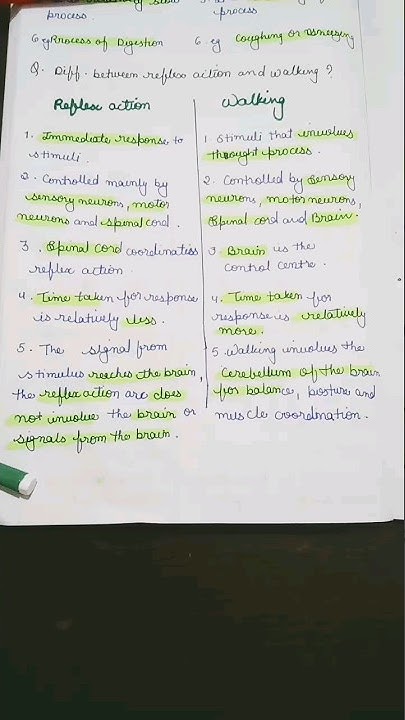 process.
process
6 eg Process of Digestion
6. eg Coughing or Sneezing
Q. Diff. between reflex action and walking?
Reflex action
1. Immediate response to
stimuli.
2. Controlled mainly by
sensory neurons, motor
neurons and spinal cord.
3. Spinal Cord coordinates
reflex action.
4. Time taken for response
is relatively less.
5. The signal from
stimulus reaches the brain,
the reflex action arc does
not involve the brain or
signals from the brain.
Walking
1. Stimuli that involves
thought process.
2. Controlled by Sensory
neurons, motor neurons,
Spinal cord and Brain.
3. Brain is the
control centre.
4. Time taken for
response is relatively
more.
5. Walking involves the
cerebellum of the brain
for balance, posture and
muscle coordination.